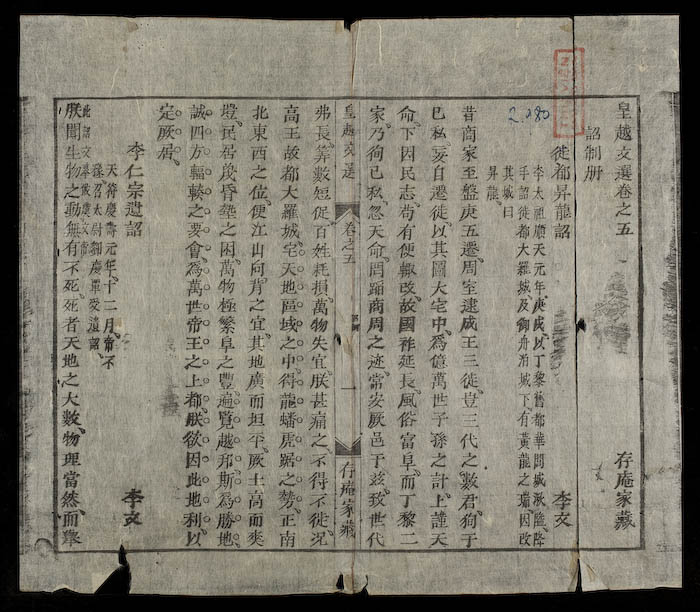 皇越文選卷之五
存庵家藏
詔制册
徙都昇龍詔
李文
李太祖順天元年庚戌以丁黎舊都華閭城湫隘降
手詔徙都大羅城及御舟泊城下有黃龍之瑞因改
其城曰
昇龍
昔商家至盤庚五遷周室逮成王三徙豈三代之數君狥于
己私妄自遷徙以其圖大宅中爲億萬世子孫之計上謹天
命下因民志苟有便輒改故國祚延長風俗富阜而丁黎二
家乃狥己私忽天命罔蹈商周之迹常安厥邑于茲致世代
皇越文選
卷之五
詔制
一
存庵家藏
弗長筭數短促百姓耗損萬物失宜朕甚痛之不得不徙况
高王故都大羅城宅天地區域之中得龍蟠虎踞之勢正南
北東西之位便江山向背之宜其地廣而坦平厥土高而爽
塏民居蔑昏墊之困萬物極繁阜之豐遍覽越邦斯爲勝地
誠四方輻輳之要會爲萬世帝王之上都朕欲因此地利以
定厥居
李仁宗遺詔
李文
天符慶壽元年十二月帝不
豫召太尉劉慶覃受遺詔
朕聞生物之動無有不死死者天地之大數物理當然而舉